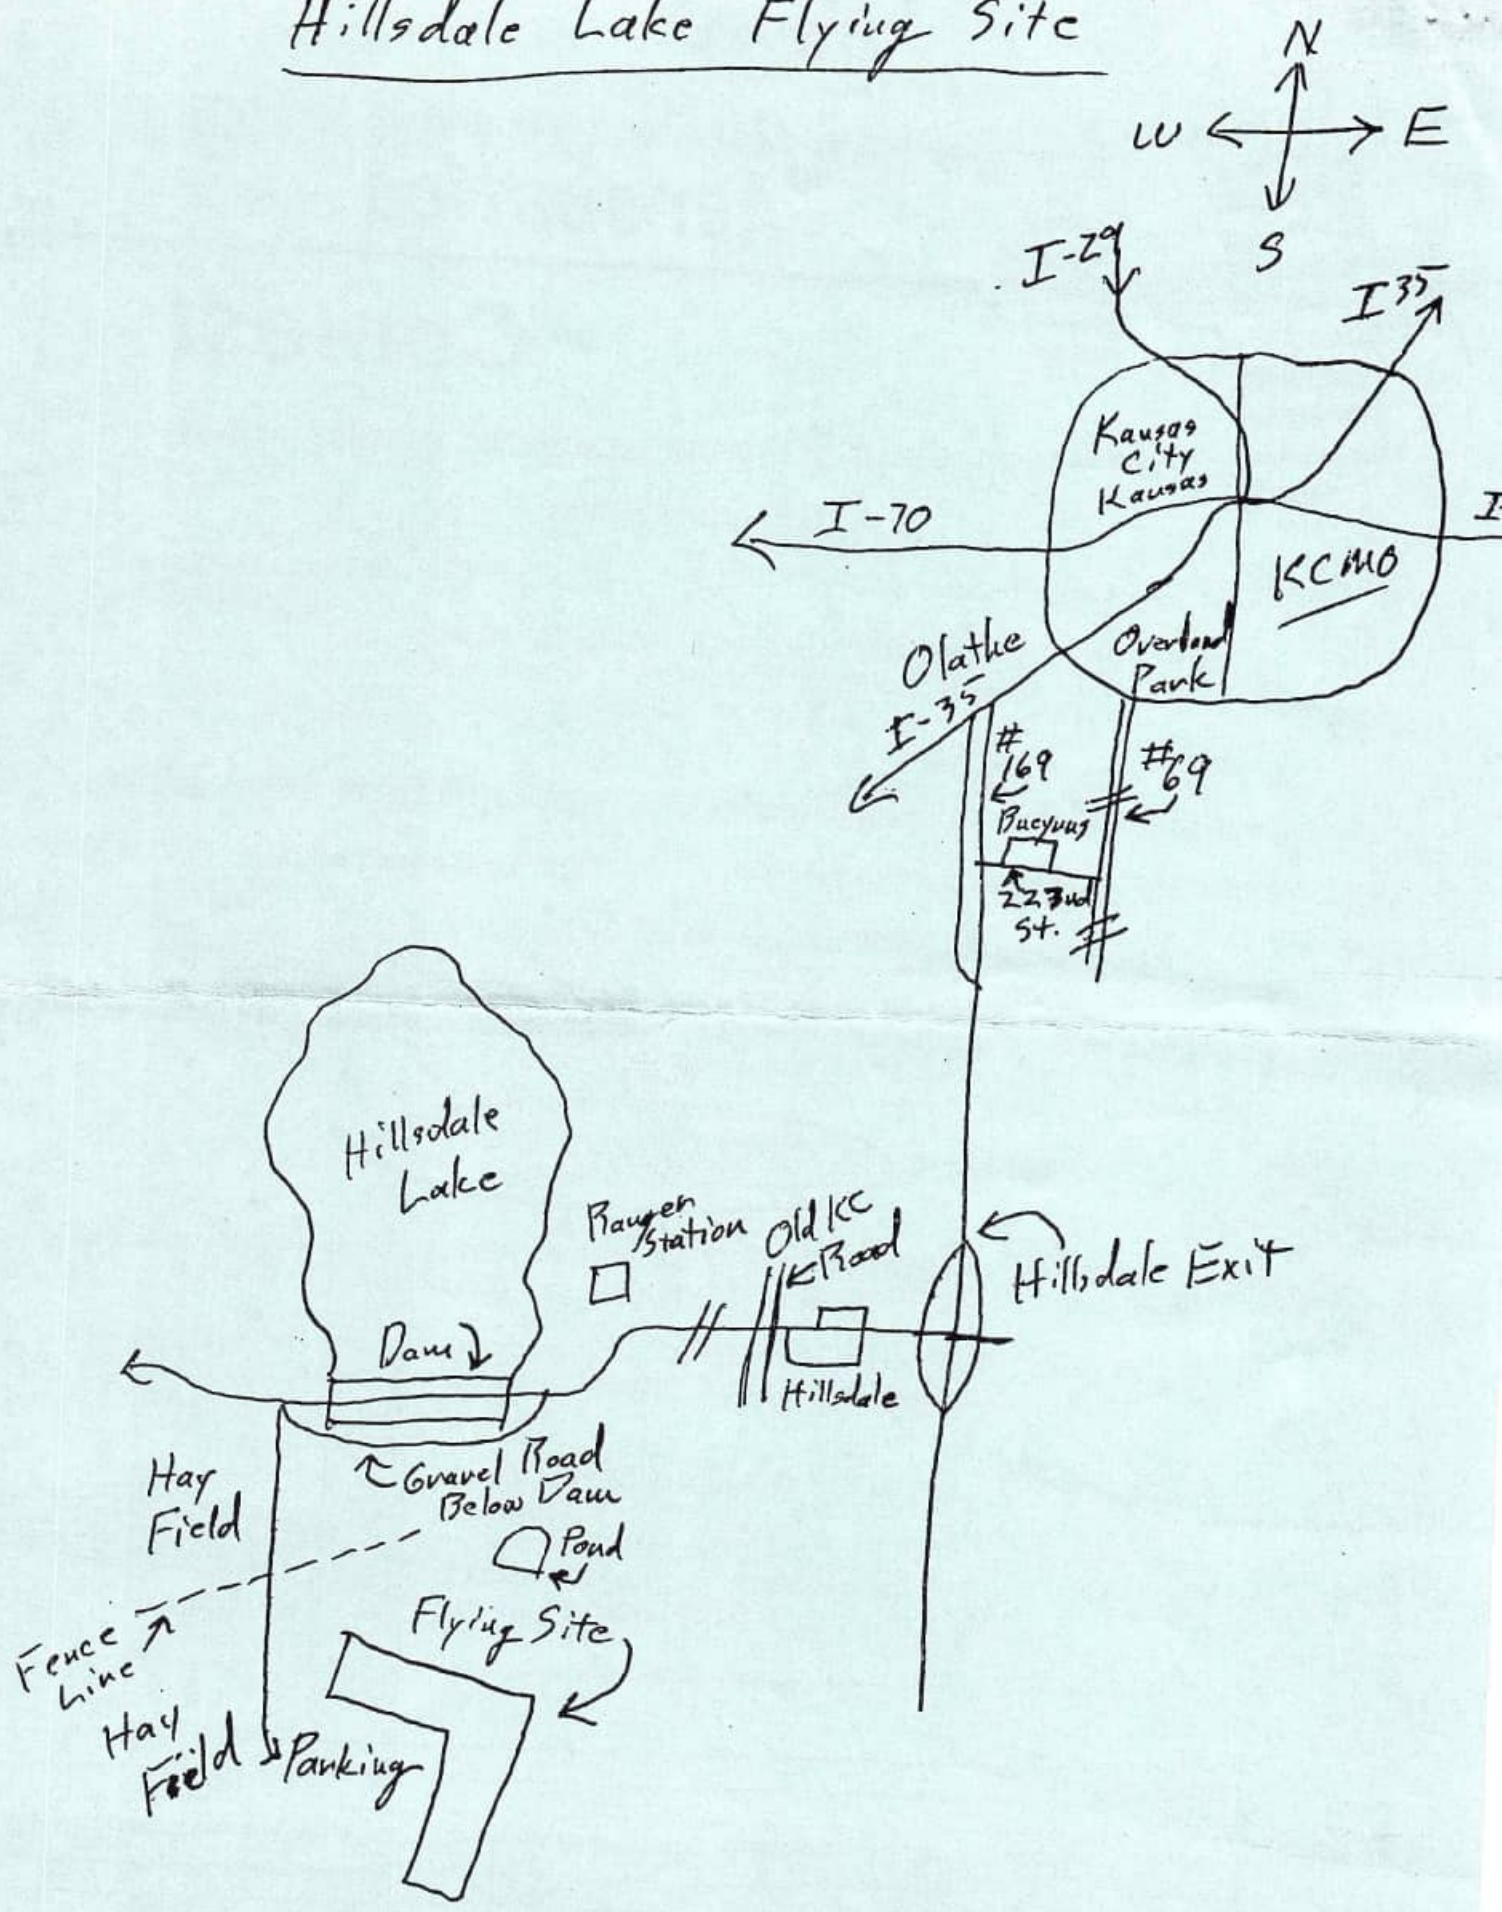 Hillsdale Lake Flying Site
N
W
E
S
I-29
I 35
Kansas
City
Kansas
I-70
I-
KCMO
Olathe
I-35
Overland
Park
#
169
#
69
Bucyrus
223rd
St.
Hillsdale
Lake
Ranger
Station
Old KC
Road
Hillsdale Exit
Dam
Hillsdale
Hay
Field
Gravel Road
Below Dam
Pond
Flying Site
Fence
Line
Hay
Field
Parking